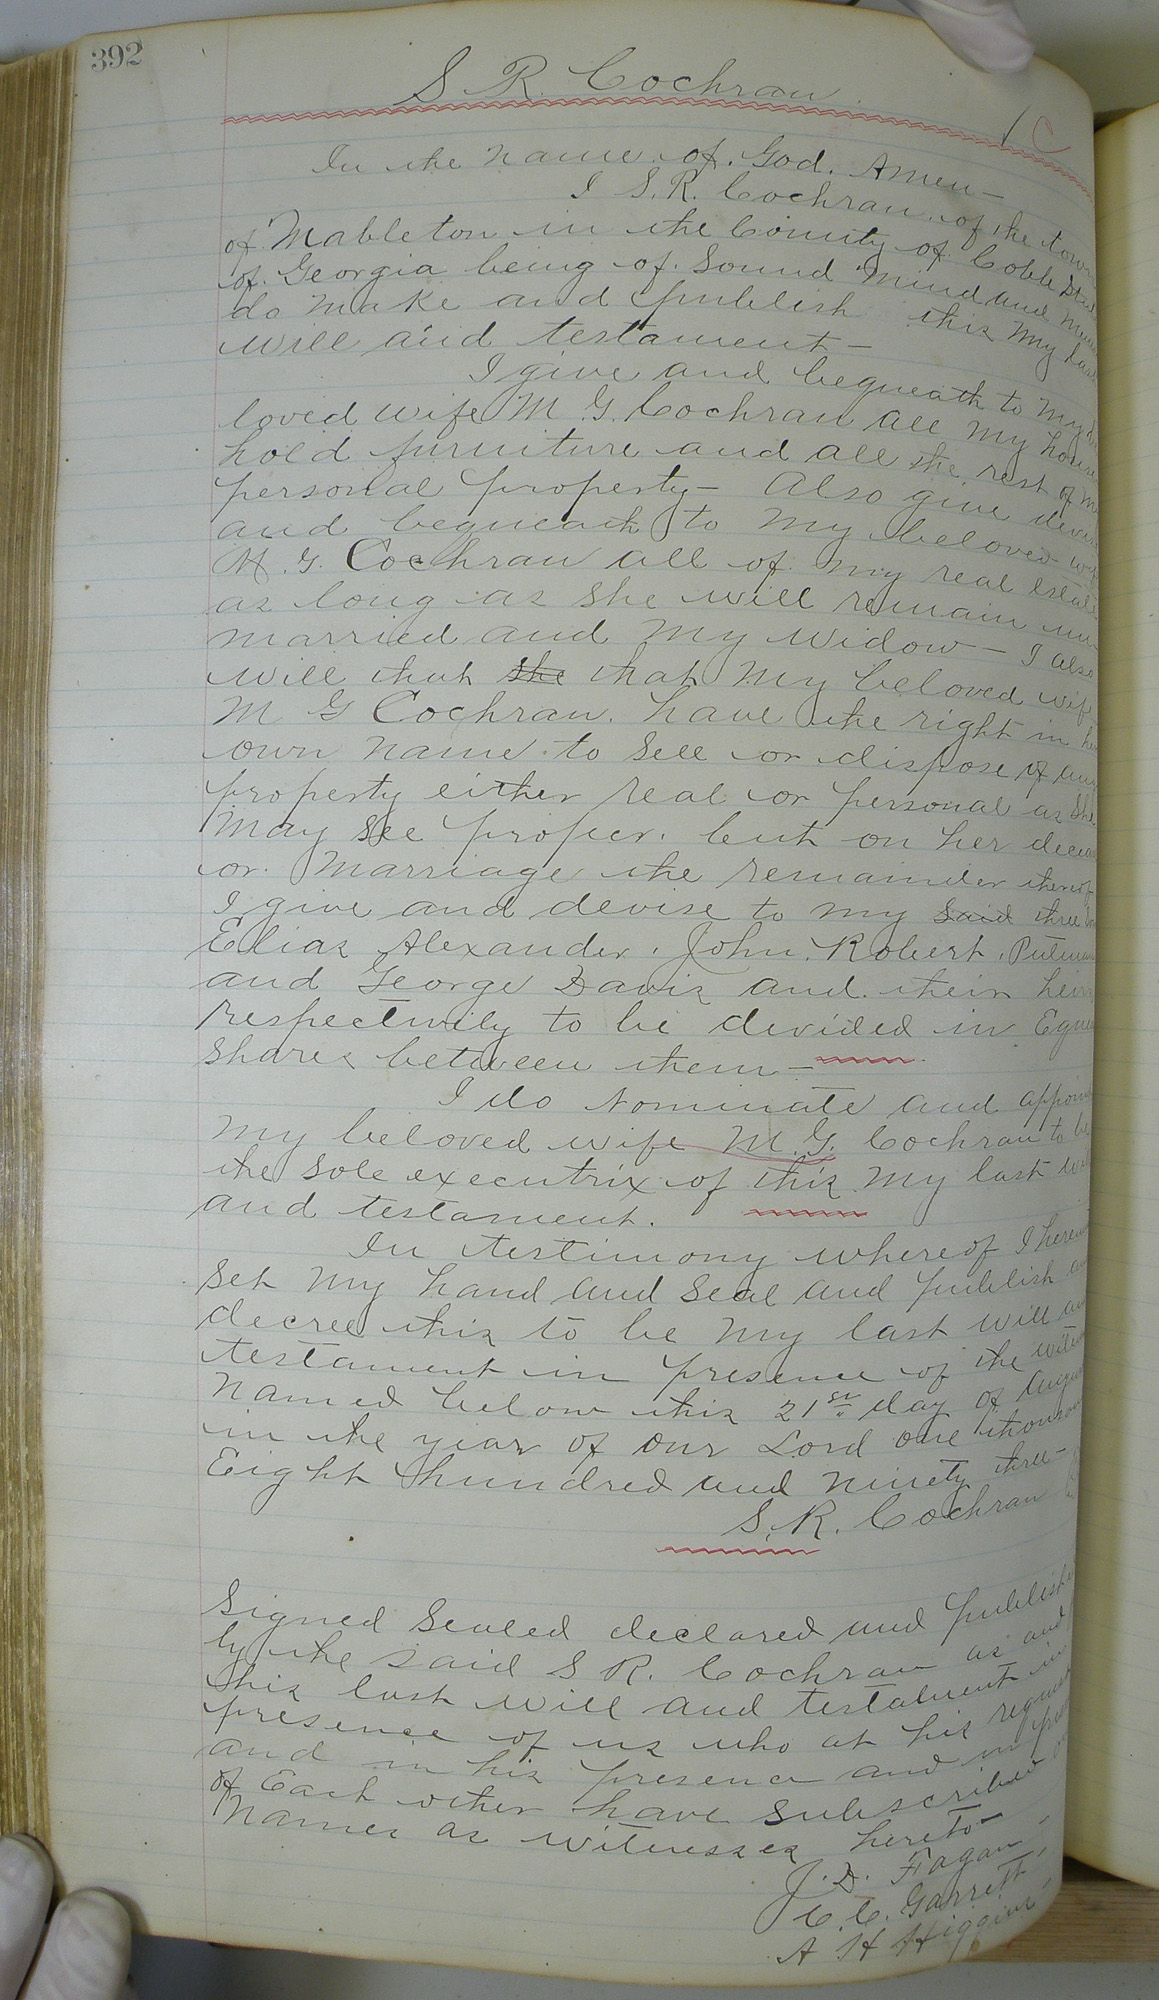 392
S R. Cochran.
C
In the name of God. Amen—
I S.R. Cochran. of the town
of Mableton in the County of Cobb State
of Georgia being of Sound Mind and
do make and publish this My last
will and testament—
I give and bequeath to My be
loved wife M. G. Cochran all my house
hold furniture and all the rest of my
personal property— Also give devise
and bequeath to My beloved wife
M. G. Cochran all of my real Estate
as long as she will remain un
married and My widow— I also
will that she that My beloved wife
M G Cochran. have the right in her
own name to sell or dispose of any
property either real or personal as she
May see proper. but on her decease
or Marriage the remainder thereof
I give and devise to my said three
Elias Alexander. John. Robert. Putman
and George Davis and their heirs
respectivily to be devided in Equal
shares between them—
I do Nominate and appoint
My beloved wife M. G. Cochran to be
the sole executrix of this My last will
and testament.
In testimony whereof I hereunto
Set My hand and seal and publish and
decree this to be My last will and
testament in presence of the witness
Named below this 21st day of August
in the year of our Lord one thousand
Eight hundred and Ninety three—
S. R. Cochran
Signed Sealed declared and publish
by the said S R. Cochran as and
his last will and testament in
presence of us who at his request
and in his presence and in
of Each other have subscribed
Names as witnesses hereto—
J. D. Fagan—
C. C. Garrett,
A H Higgins—